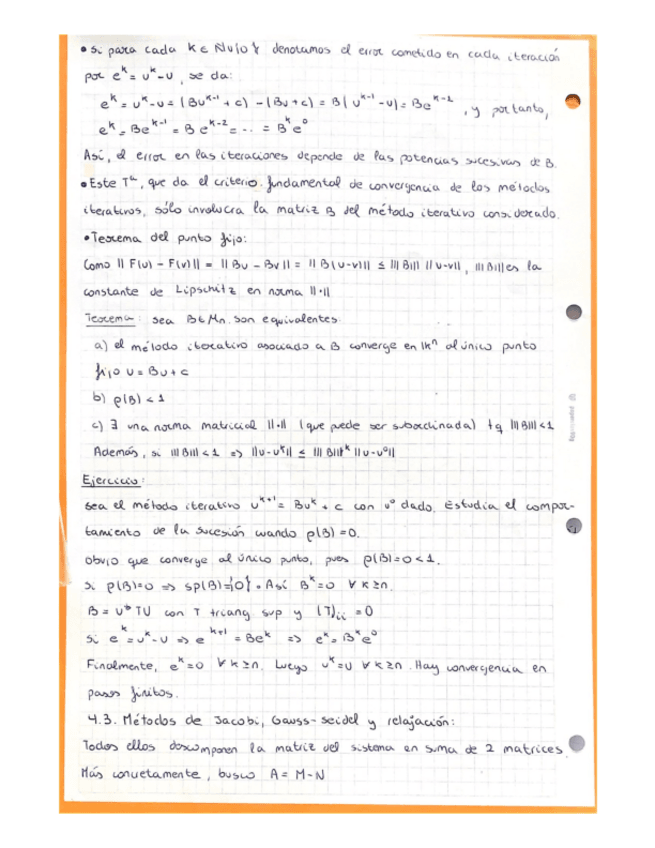 • Si para cada k ∈ ℕ∪{0} denotamos el error cometido en cada iteración
por e^k = u^k - u, se da:
e^k = u^k - u = (Bu^{k-1} + c) - (Bu + c) = B(u^{k-1} - u) = Be^{k-1}, y por tanto,
e^k = Be^{k-1} = B e^{k-2} = ... = B^k e^0
Así, el error en las iteraciones depende de las potencias sucesivas de B.
• Este T^{ma}, que da el criterio fundamental de convergencia de los métodos
iterativos, sólo involucra la matriz B del método iterativo considerado.
• Teorema del punto fijo:
Como ||F(u) - F(v)|| = ||Bu - Bv|| = ||B(u-v)|| ≤ |||B||| ||u-v||, |||B||| es la
constante de Lipschitz en norma ||·||
Teorema: sea B∈Mn. son equivalentes:
a) el método iterativo asociado a B converge en IK^n al único punto
fijo u = Bu + c
b) ρ(B) < 1
c) ∃ una norma matricial ||·|| (que puede ser subordinada) tq |||B||| < 1
Además, si |||B||| < 1 => ||u-u^k|| ≤ |||B|||^k ||u-u^0||
Ejercicio:
sea el método iterativo u^{k+1} = Bu^k + c con u^0 dado. Estudia el compor-
tamiento de la sucesión cuando ρ(B) = 0.
Obvio que converge al único punto, pues ρ(B) = 0 < 1.
Si ρ(B)=0 => sp(B)={0}. Así B^k = 0 ∀ k≥n.
B = U* TU con T triang sup y (T)ii = 0
Si e^k = u^k - u => e^{k+1} = Be^k => e^k = B^k e^0
Finalmente, e^k = 0 ∀ k≥n. Luego u^k = u ∀ k≥n. Hay convergencia en
pasos finitos.
4.3. Métodos de Jacobi, Gauss-Seidel y relajación:
Todos ellos descomponen la matriz del sistema en suma de 2 matrices.
Más concretamente, busco A = M - N